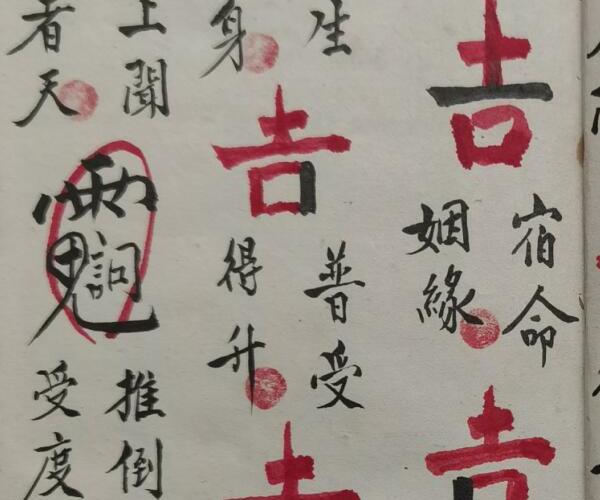 吉
宿命
姻緣
生
身
吉
普受
得升
上聞
者天
推倒
受度